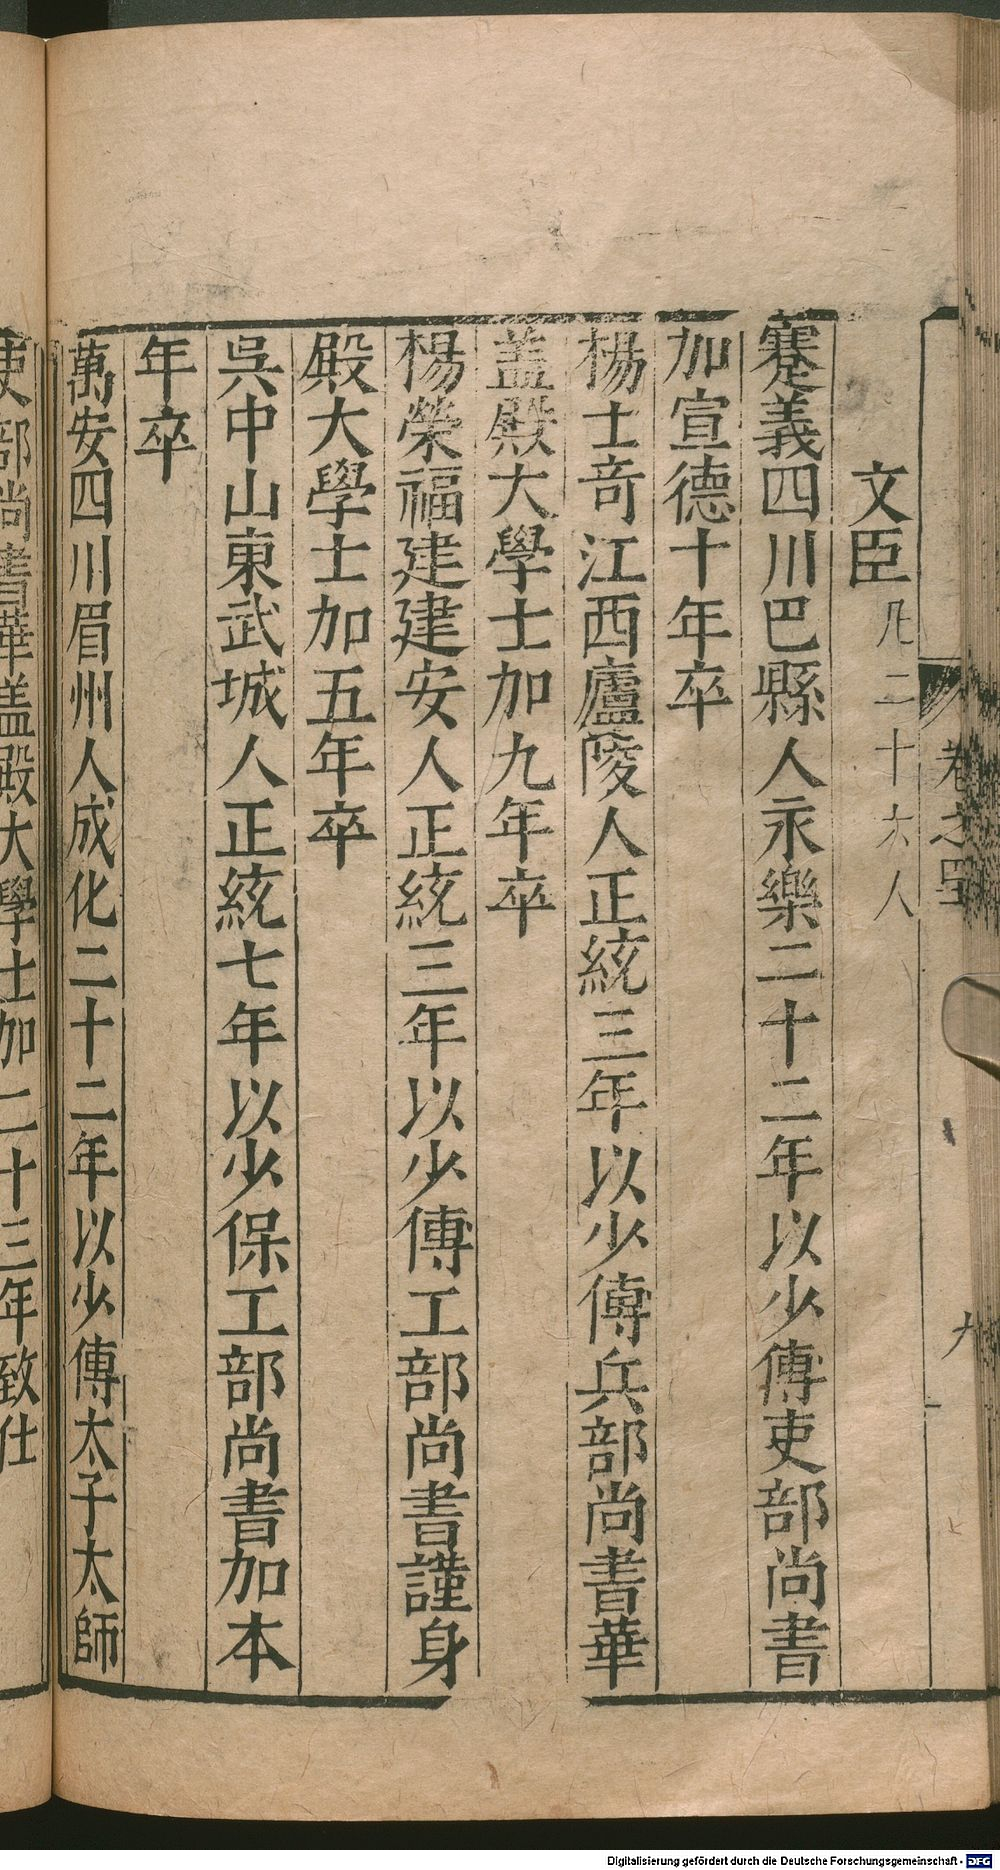 卷之四
九
文臣凡二十六人
蹇義四川巴縣人永樂二十二年以少傅吏部尚書
加宣德十年卒
楊士奇江西廬陵人正統三年以少傅兵部尚書華
盖殿大學士加九年卒
楊榮福建建安人正統三年以少傅工部尚書謹身
殿大學士加五年卒
吳中山東武城人正統七年以少保工部尚書加本
年卒
萬安四川眉州人成化二十二年以少傅太子太師
吏部尚書華盖殿大學士加二十三年致仕
Digitalisierung gefördert durch die Deutsche Forschungsgemeinschaft - DFG